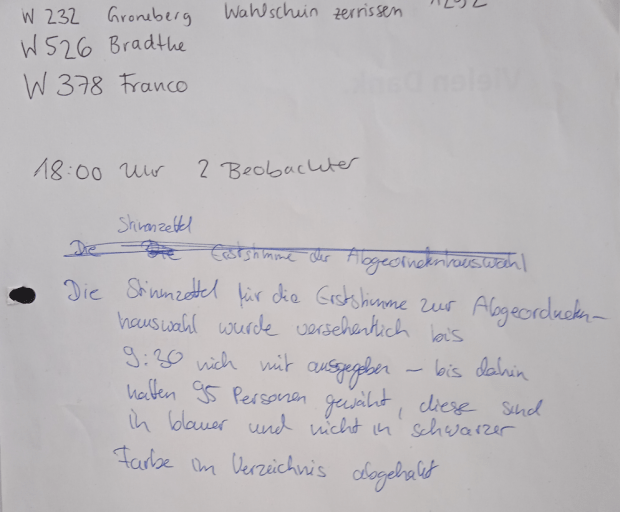 W 232 Groneberg Wahlschein zerrissen
W 526 Bradthe
W 378 Franco
Vielen Dank
18:00 Uhr 2 Beobachter
Stimmzettel
Die Die Erststimme der Abgeordnetenhauswahl
Die Stimmzettel für die Erststimme zur Abgeordneten-
hauswahl wurde versehentlich bis
9:30 nich mit ausgegeben – bis dahin
hatten 95 Personen gewählt, diese sind
in blauer und nicht in schwarzer
Farbe im Verzeichnis abgehakt